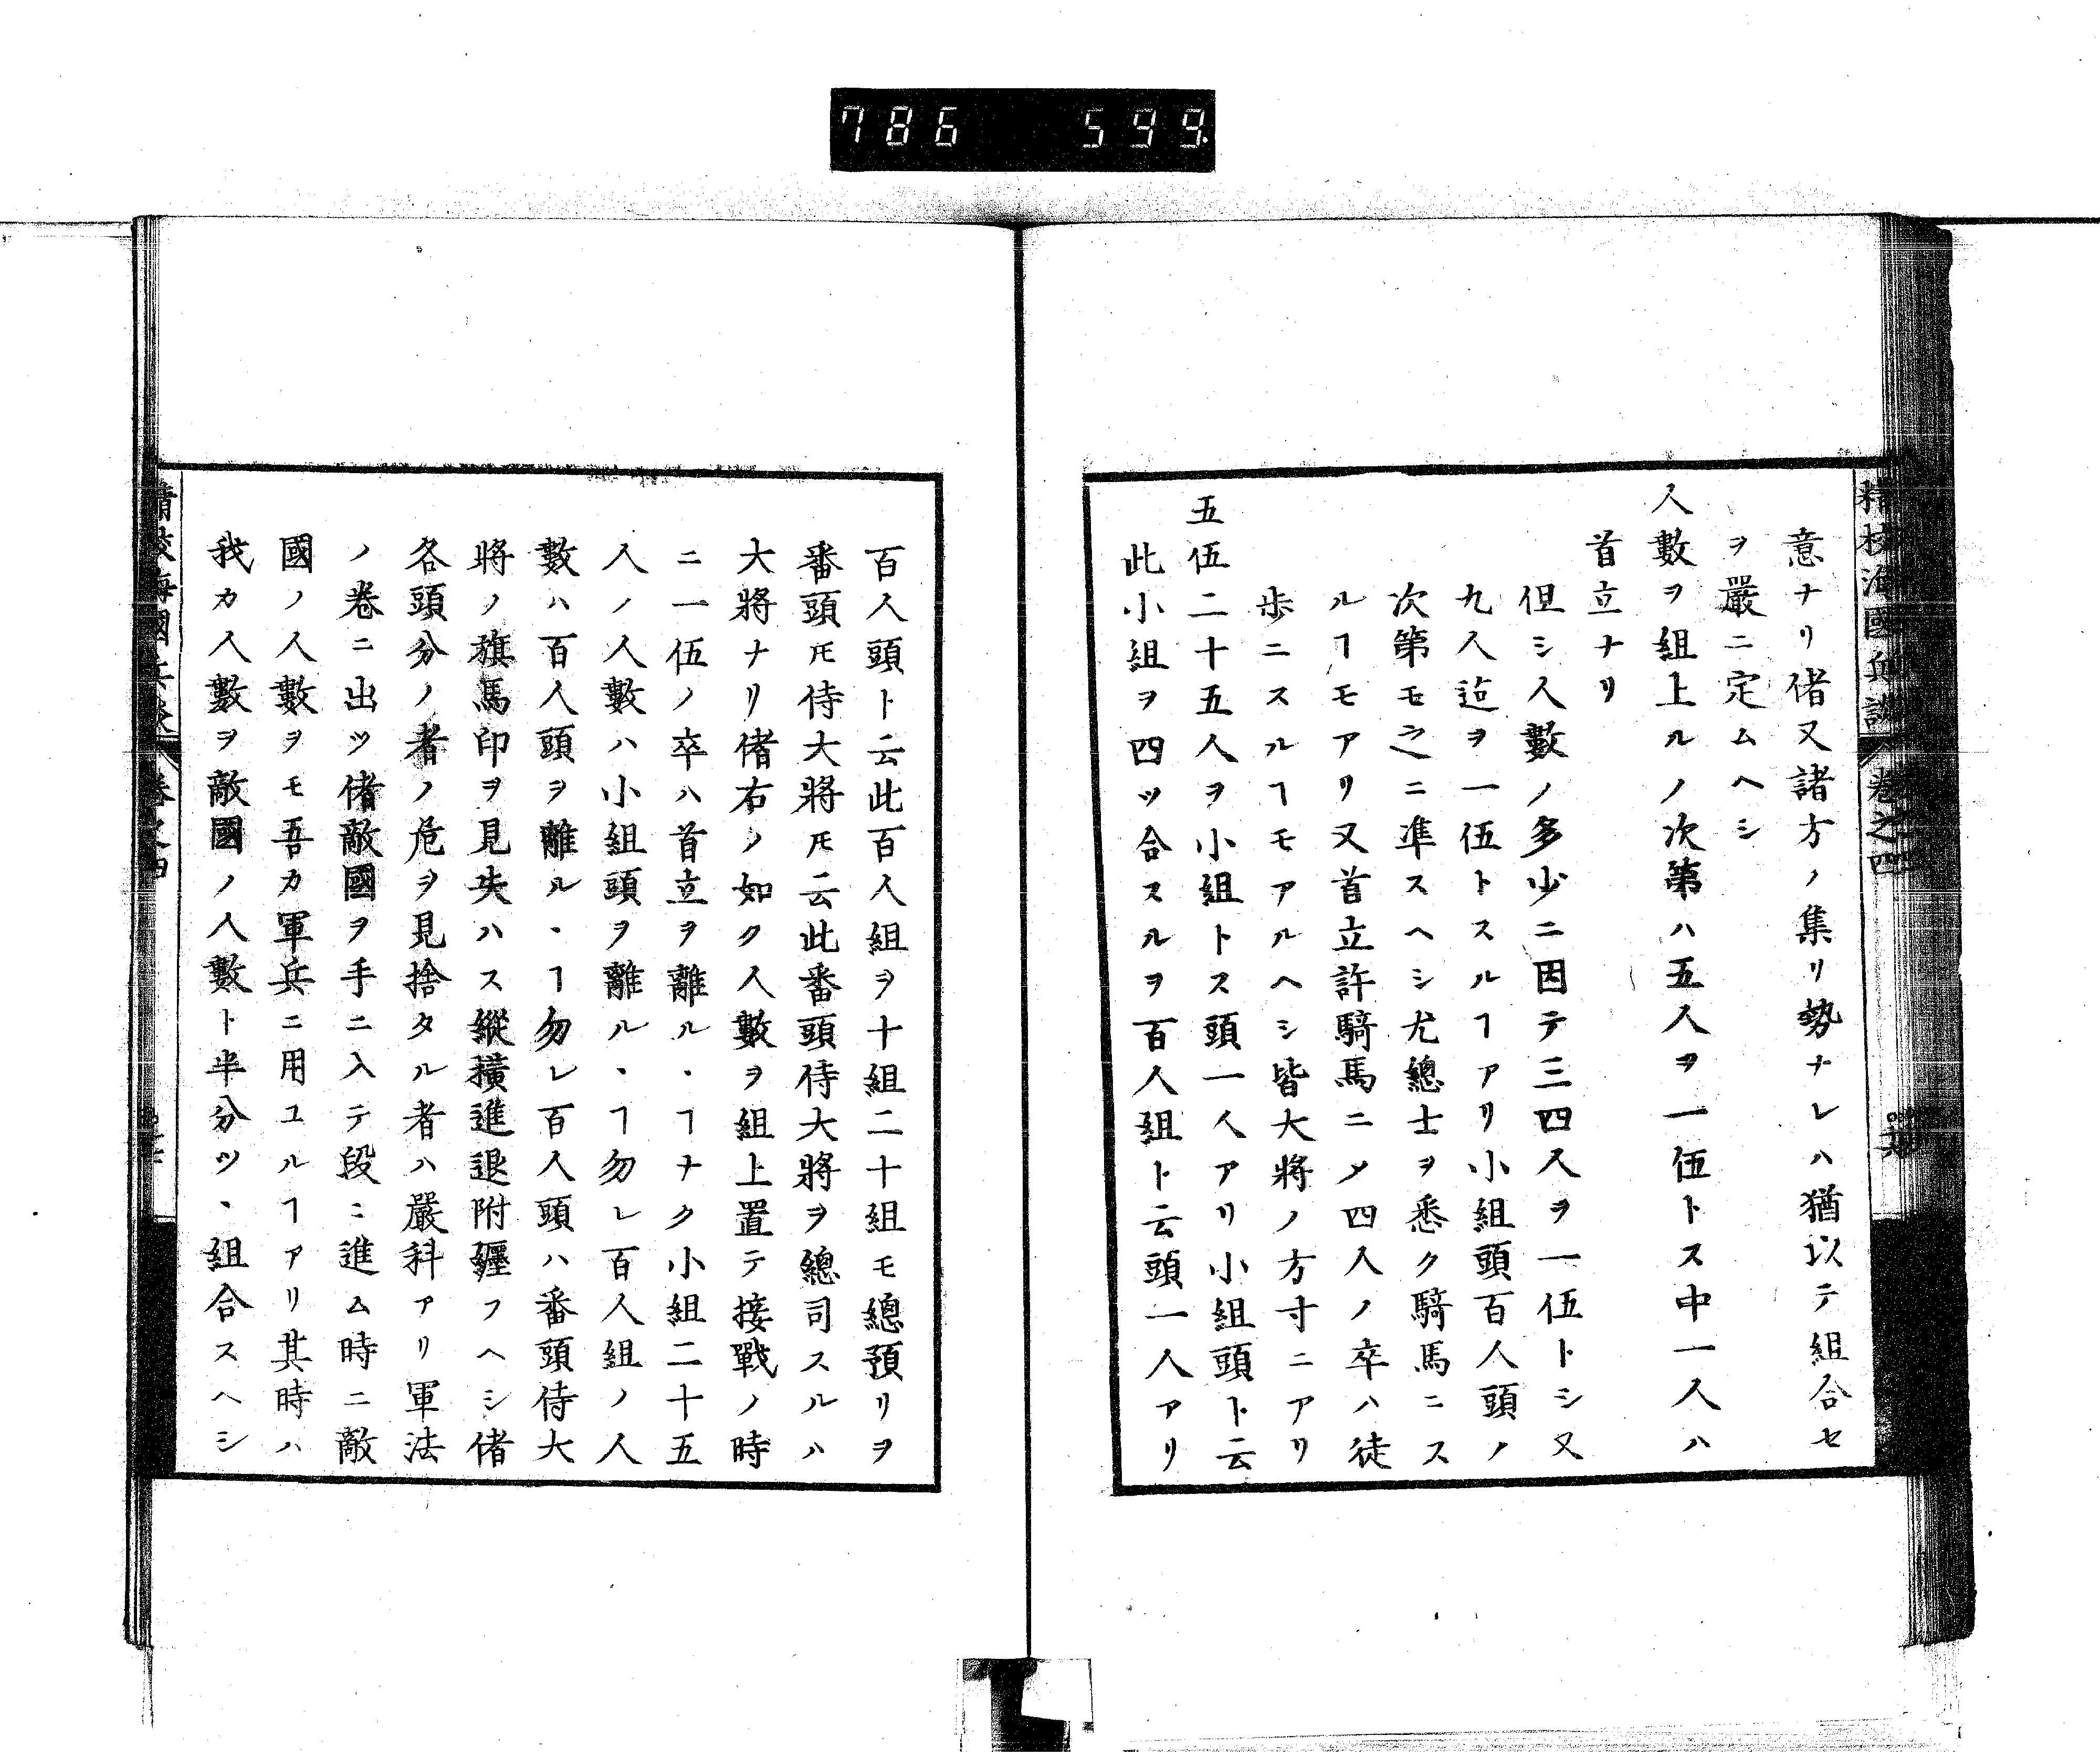 786 599
精校海國兵談 卷之四
意ナリ偖又諸方ノ集リ勢ナレハ猶以テ組合セ
ヲ嚴ニ定ムヘシ
人數ヲ組上ルノ次第ハ五人ヲ一伍トス中一人ハ
首立ナリ
但シ人數ノ多少ニ因テ三四人ヲ一伍トシ又
九人迠ヲ一伍トスルヿアリ小組頭百人頭ノ
次第モ之ニ準スヘシ尤總士ヲ悉ク騎馬ニス
ルヿモアリ又首立許騎馬ニメ四人ノ卒ハ徒
歩ニスルヿモアルヘシ皆大將ノ方寸ニアリ
五伍二十五人ヲ小組トス頭一人アリ小組頭ト云
此小組ヲ四ツ合スルヲ百人組ト云頭一人アリ
百人頭ト云此百人組ヲ十組二十組モ總預リヲ
番頭𪜈侍大將𪜈云此番頭侍大將ヲ總司スルハ
大將ナリ偖右ノ如ク人數ヲ組上置テ接戰ノ時
ニ一伍ノ卒ハ首立ヲ離ル丶ヿナク小組二十五
人ノ人數ハ小組頭ヲ離ル丶ヿ勿レ百人組ノ人
數ハ百人頭ヲ離ル丶ヿ勿レ百人頭ハ番頭侍大
將ノ旗馬印ヲ見失ハス縱横進退附纏フヘシ偖
各頭分ノ者ノ危ヲ見捨タル者ハ嚴科アリ軍法
ノ卷ニ出ツ偖敵國ヲ手ニ入テ段ニ進ム時ニ敵
國ノ人數ヲモ吾カ軍兵ニ用ユルヿアリ其時ハ
我カ人數ヲ敵國ノ人數ト半分ツ丶組合スヘシ
精校海國兵談 卷之四